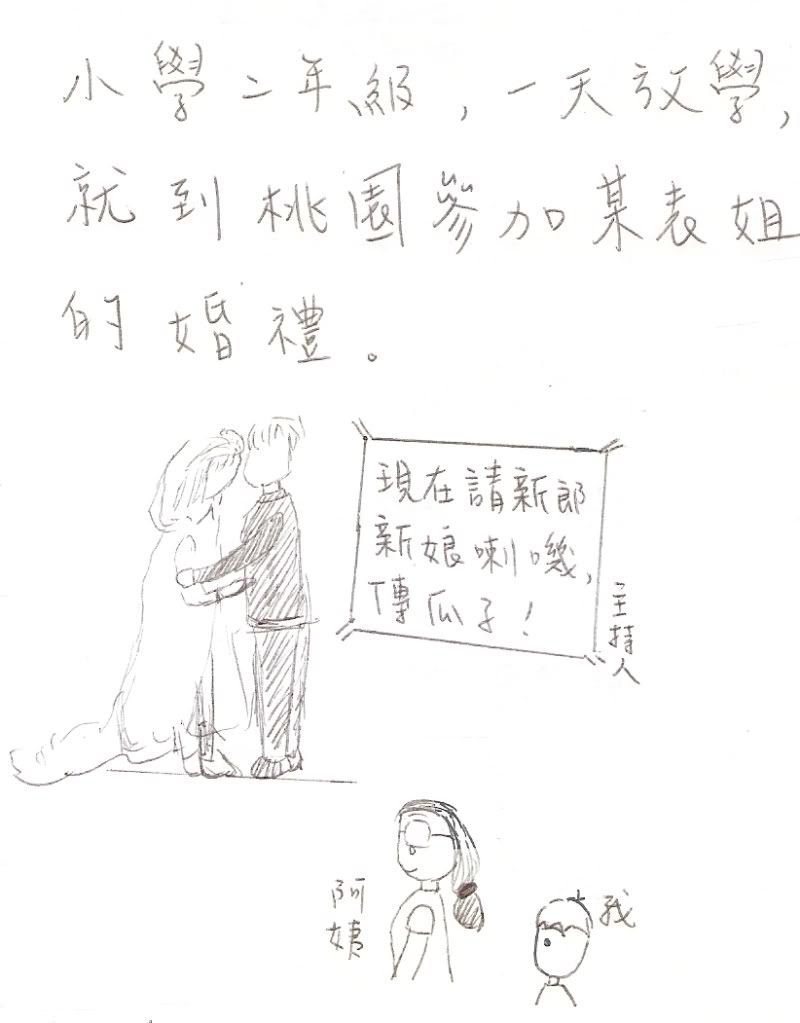 小學二年級，一天放學，
就到桃園參加某表姐
的婚禮。
現在請新郎
新娘喇嘰，
傳瓜子！
主持人
阿姨
我